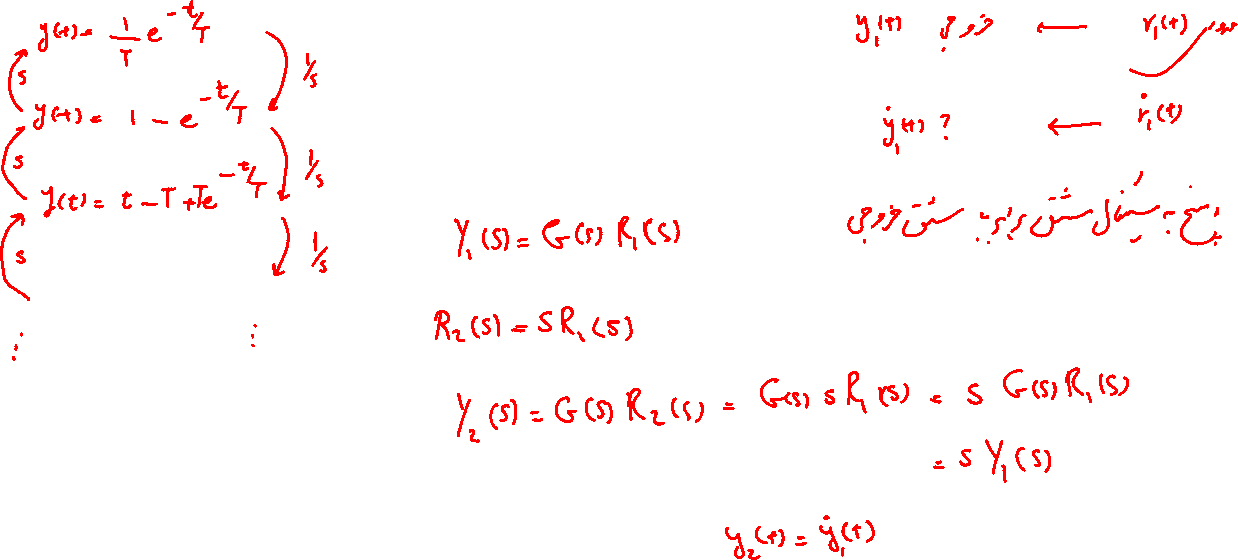 y(t) = 1/T e^{-t/T}
1/s
s
y(t) = 1 - e^{-t/T}
s
1/s
y(t) = t - T + Te^{-t/T}
s
1/s
⋮ ⋮
r₁(t) ← خروجی y₁(t)
ṙ₁(t) ← ẏ₁(t) ?
پاسخ به سیگنال مشتق برابر با مشتق خروجی
Y₁(s) = G(s) R₁(s)
R₂(s) = S R₁(s)
Y₂(s) = G(s) R₂(s) = G(s) s R₁(s) = s G(s) R₁(s)
= s Y₁(s)
y₂(t) = ẏ₁(t)